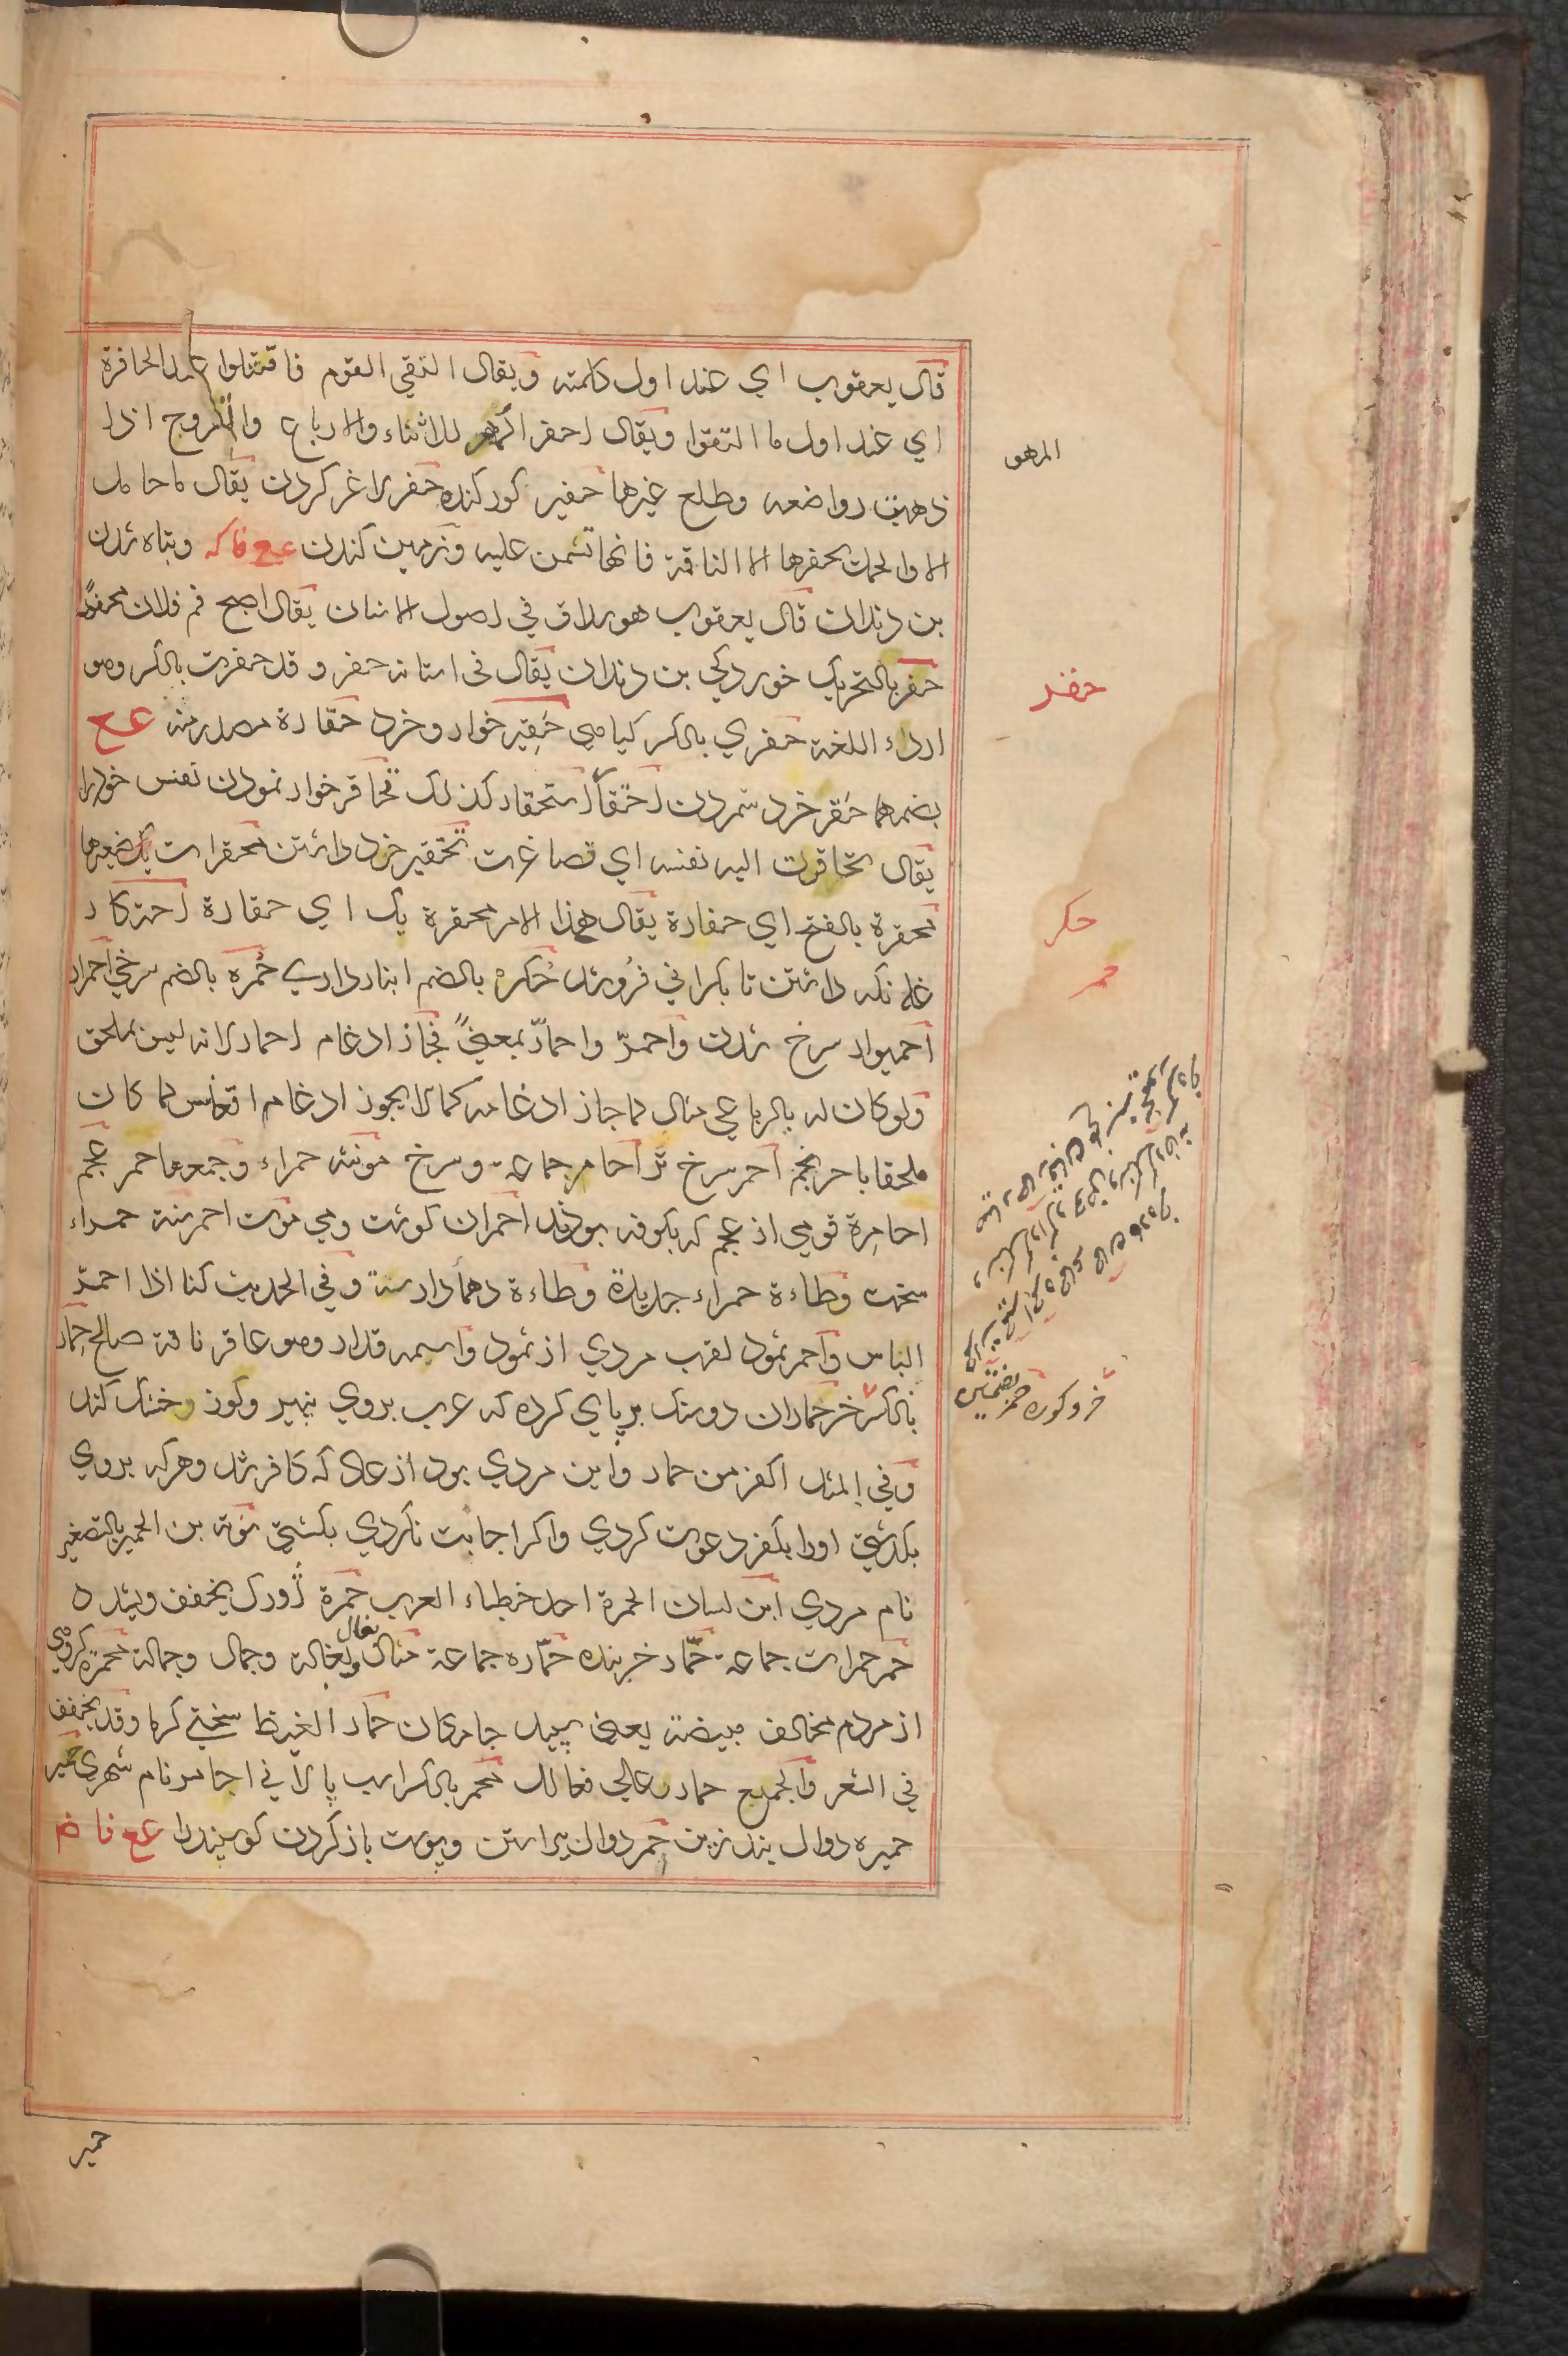 قال يعقوب اي عند اول كلمته ويقال التقي القوم فاقتتلوا عند الحافرة
اي عند اول ما التقوا ويقال احفر المهر للاثناء والارباع والقروح اذا
ذهبت رواضعه وطلع غيرها حفير كور كنده حفر لاغر كردن يقال ما حامل
الا والحمل يحفرها الا الناقة فانها تسمن عليه وزمين كندن ع ع فا كه وتباه شدن
بن دندان قال يعقوب هو سلاق في اصول الاسنان يقال اصبح فم فلان محفورا
حفر بالتحريك خوردكي بن دندان يقال في اسنانه حفر وقد حفرت بالكسر وهو
اردا اللغة حفري بالكسر كياهي حقير خوار وخرد حقارة مصدر منه ع ع
بضمهما حقر خرد شمردن احتقار استحقار كذلك تحاقر خوار نمودن نفس خود را
يقال تحاقرت اليه نفسه اي تصاغرت تحقير خرد داشتن محقرات
محقرة بالفتح اي حقارة يقال هذا الامر محقرة بك اي حقارة احتكار
غله نكه داشتن تا بكراني فروشد حكره بالضم انبار داري حمره بالضم سرخي احمرار
احميرار سرخ شدن واحمرّ واحمارّ بمعنىً فجاز ادغام احمار لانه ليس بملحق
ولو كان له بالرباعي مثال لما جاز ادغامه كما لا يجوز ادغام اقعنسس لما كان
ملحقا باحرنجم احمر سرخ تر احامر جماعة وسرخ مونثه حمراء وجمعها حمر عجم
احامرة قومي از عجم كه بكوفه بودند احمران كوشت ومي موت احمر سنة حمراء
سخت وطاءة حمراء جديدة وطاءة دهما دارسة وفي الحديث كنا اذا احمرّ
الباس واحمر ثمود لقب مردي از ثمود واسمه قدار وهو عاقر ناقة صالح حمار
بالكسر خر حماران دو سنك بر پاي كرده كه عرب بروي پنير وكوز وخشك كند
وفي المثل اكفر من حمار واين مردي بود از عاد كه كافر شد وهر كه بروي
بكذشتي اورا بكفر دعوت كردي واكر اجابت نكردي بكشتي توبة بن الحمير بالتصغير
نام مردي ابن لسان الحمرة احد خطباء العرب حمرة ژورك يخفف ويشدد
حمر حمرات جماعة حمّار خربنده حمّاره جماعة مثال بغال وبغالة وجمال وجمالة محمرة كروهي
از مردم مخالف مبيضة يعني سپيد جامكان حمار الغيظ سختي كرما وقد يخفف
في الشعر والجميع حمار وعالي فعالل محمر بالكسر اسب پالاني اجامر نام شهري حمير
حميره دوال بند زين حمر دوال پيراستن وپوست باز كردن كوسپند را ع ع فا ض
المهر
حفر
حكر
حمر
خر وكوره حمر بضمتين
حمير